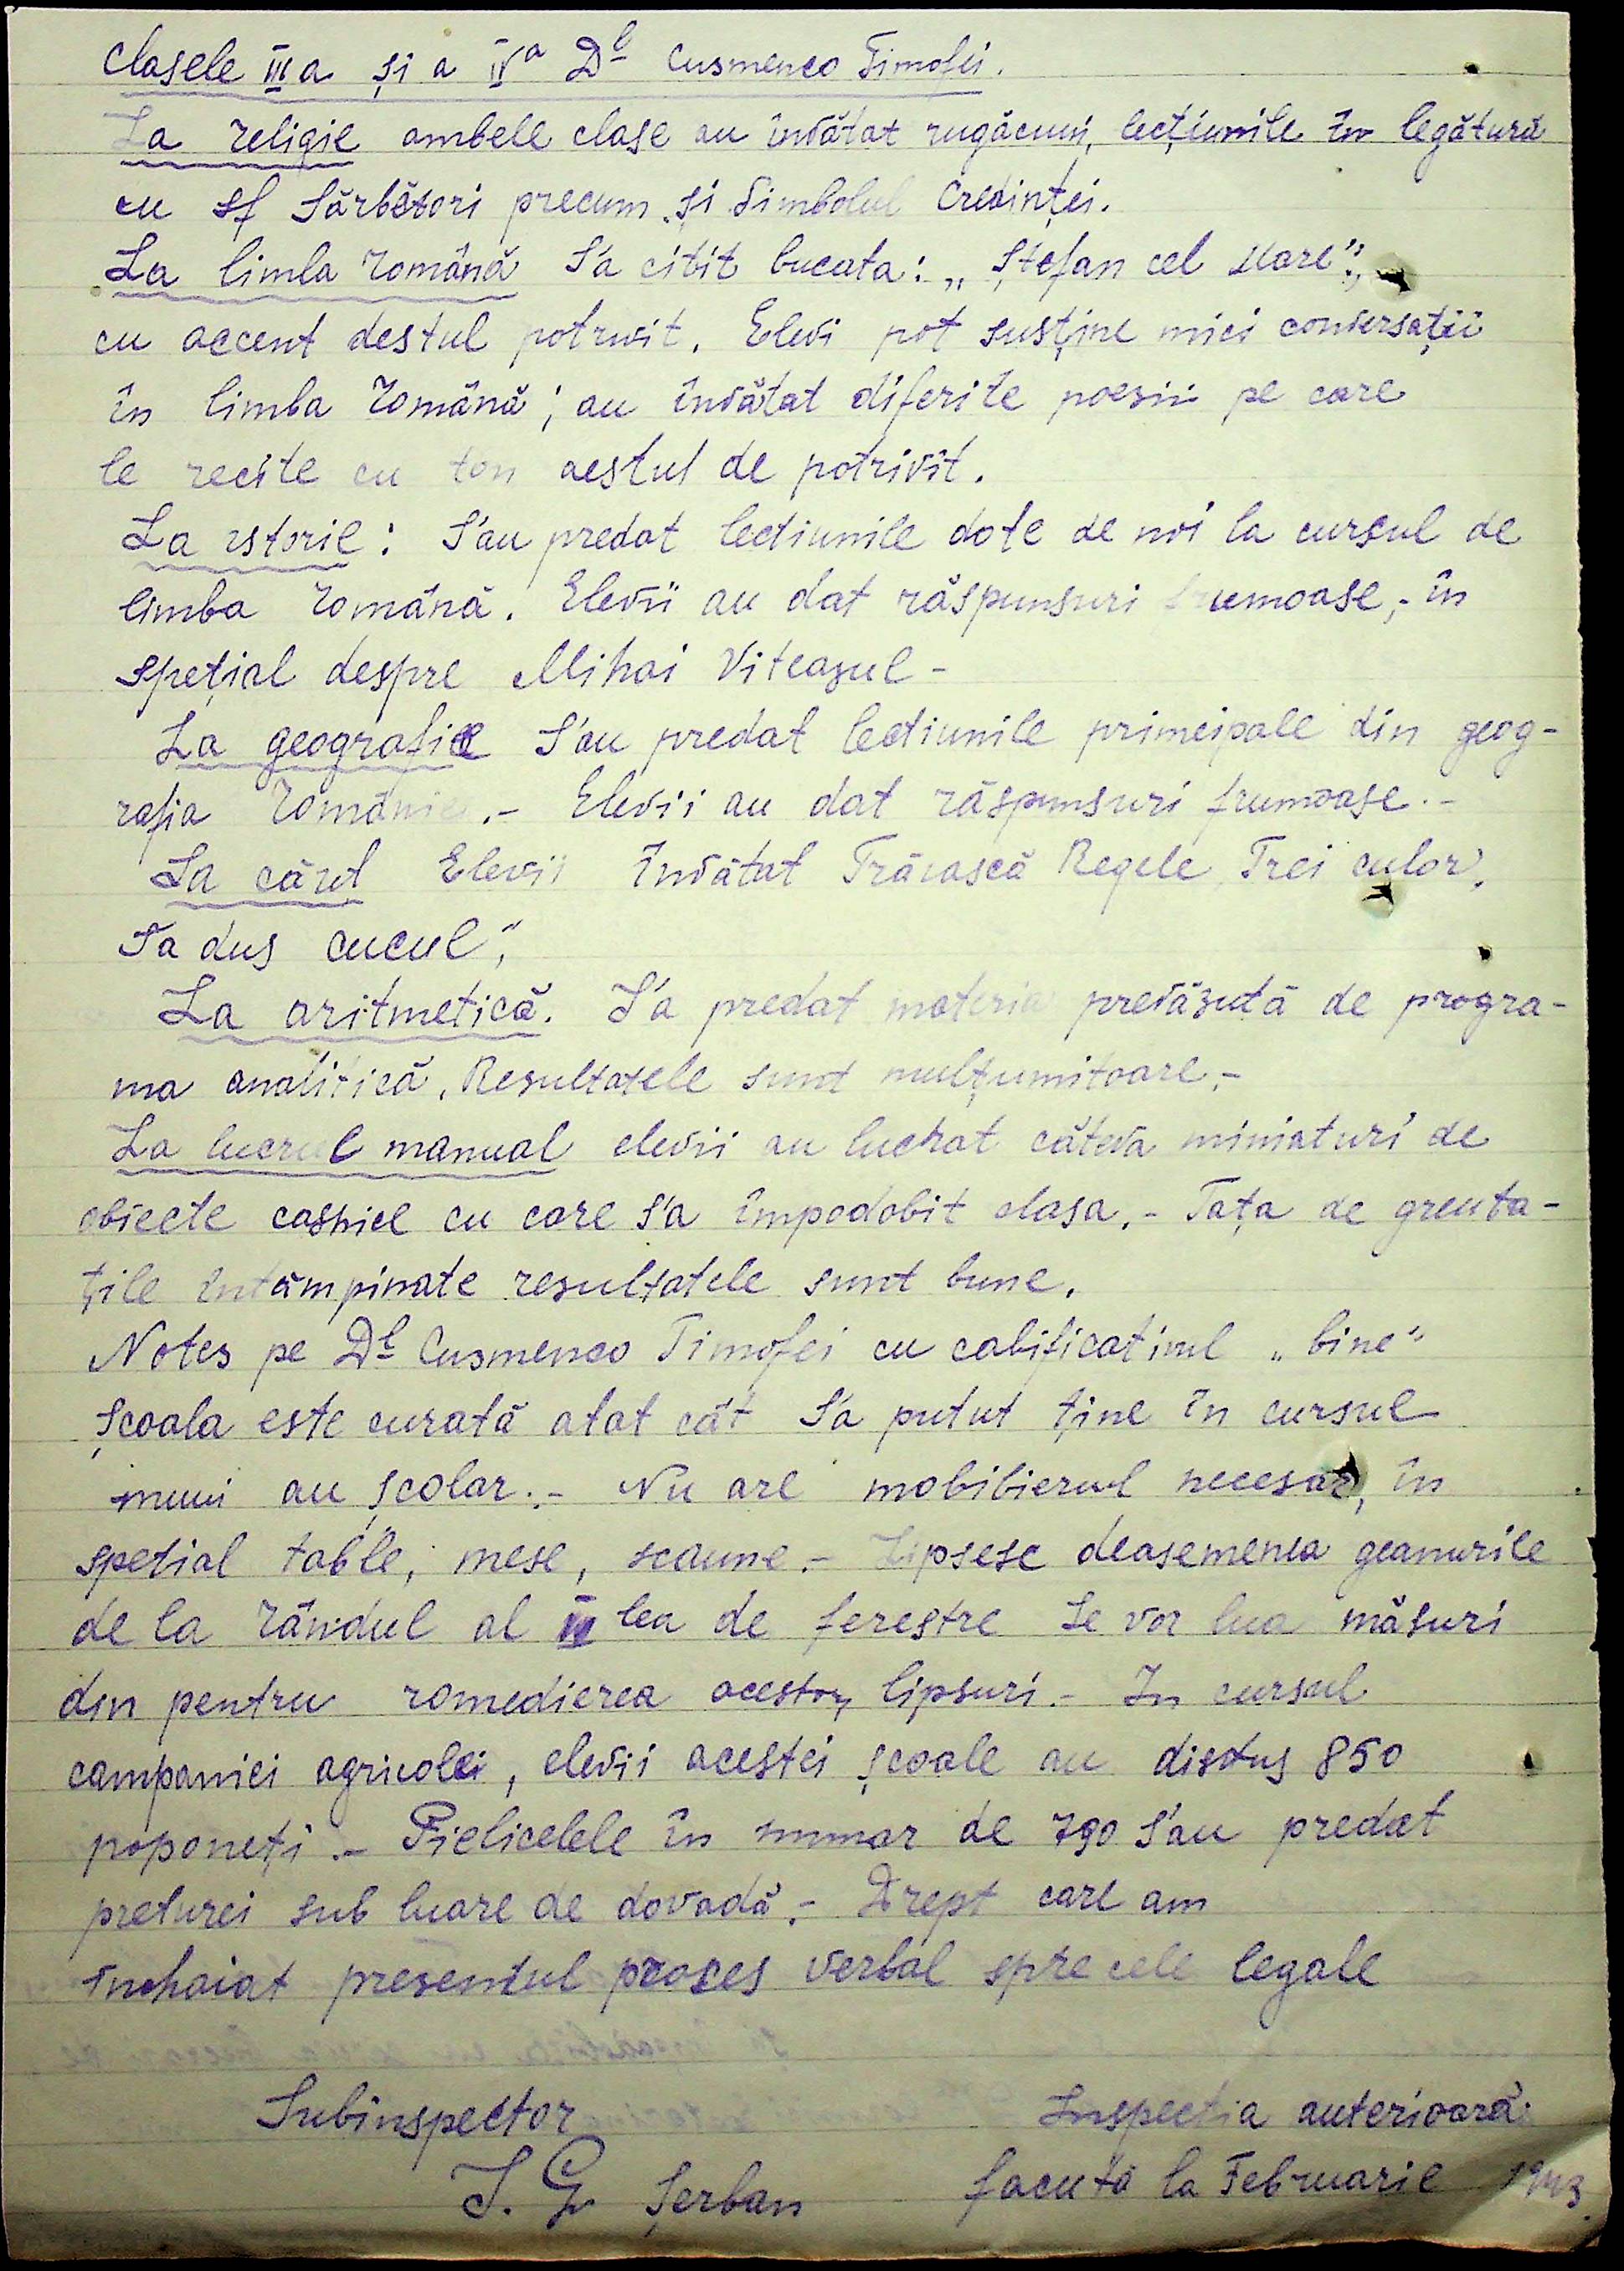 Clasele III a și a IVa Dl Cusmenco Timofei.
La religie ambele clase au învătat rugăcuni, lecțiunile în legătură
cu sf Sărbători precum și Simbolul Credinței.
La limba română S'a citit bucata: „Ștefan cel Mare",
cu accent destul potrivit. Elevi pot susține mici conversații
în limba română; au învătat diferite poesii pe care
le recite cu ton destul de potrivit.
La istorie: S'au predat lectiunile date de noi la cursul de
limba română. Elevii au dat răspunsuri frumoase,- în
spețial despre Mihai Viteazul -
La geografie S'au predat lectiunile principale din geog-
rafia României.- Elevii au dat răspunsuri frumoase.-
La cânt Elevii învătat Trăiască Regele, Trei culori,
S'a dus cucul",
La aritmetică. S'a predat materia prevăzută de progra-
ma analitică. Resultatele sunt mulțumitoare.-
La lucrul manual elevii au luchat câteva miniaturi de
obiecte casnice cu care s'a împodobit clasa.- Fața de greuta-
țile întâmpinate resultatele sunt bune.
Notez pe Dl Cusmenco Timofei cu calificativul „bine"
Școala este curată atat cât S'a putut ține în cursul
unui an școlar.- Nu are mobilierul necesar, în
spetial table, mese, scaune.- Lipsesc deasemenea geamurile
de la rândul al II lea de ferestre Se vor lua măsuri
din pentru romedierea acestor lipsuri.- In cursul
campaniei agricolei, elevii acestei școale au distus 850
poponeți.- Pielicelele în numar de 790 S'au predat
preturei sub luare de dovadă.- Drept care am
închaiat presentul proces verbal spre cele legale
Subinspector
Inspectia anterioară
I. G. Șerban
facută la Februarie 1943.